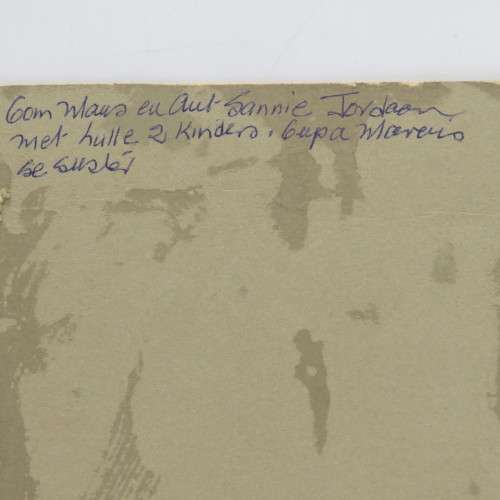 Oom Maus en Aut Sannie Jordaan
met hulle 2 kinders. Oupa Marcus
se suster